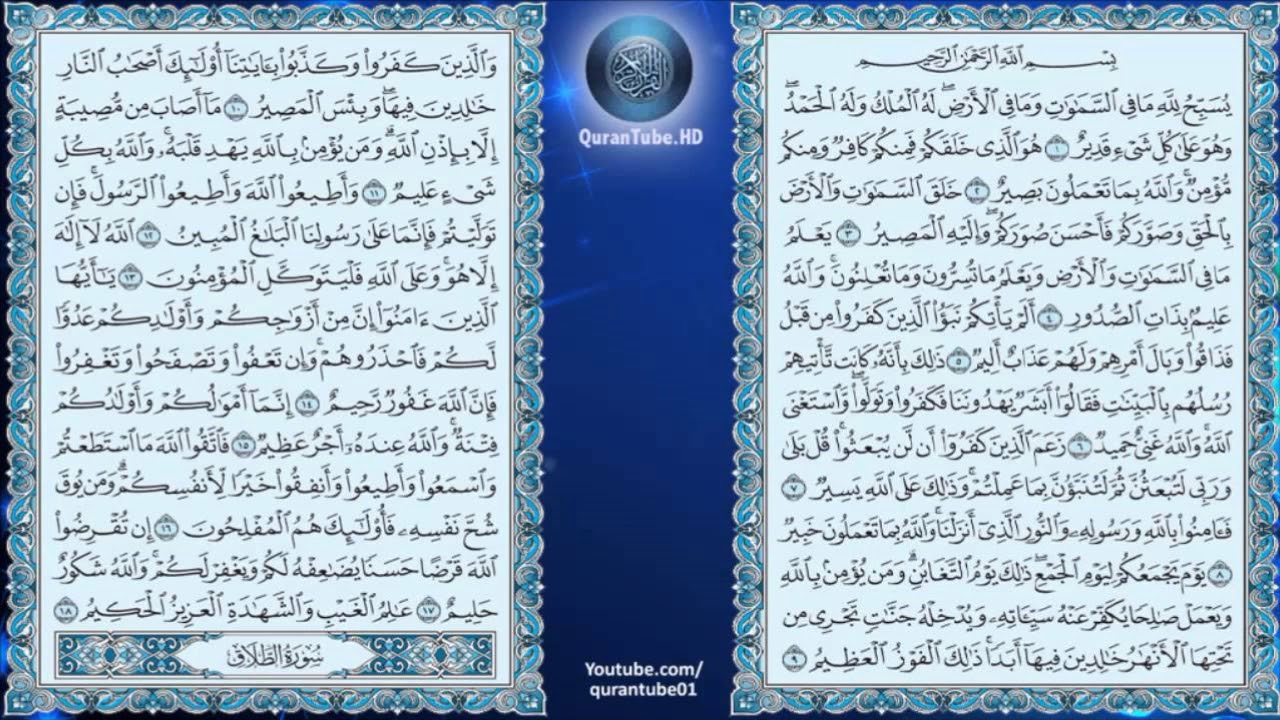 بِسْمِ اللَّهِ الرَّحْمَٰنِ الرَّحِيمِ
يُسَبِّحُ لِلَّهِ مَا فِي السَّمَاوَاتِ وَمَا فِي الْأَرْضِ ۖ لَهُ الْمُلْكُ وَلَهُ الْحَمْدُ ۖ
وَهُوَ عَلَىٰ كُلِّ شَيْءٍ قَدِيرٌ ١ هُوَ الَّذِي خَلَقَكُمْ فَمِنكُمْ كَافِرٌ وَمِنكُم
مُّؤْمِنٌ ۚ وَاللَّهُ بِمَا تَعْمَلُونَ بَصِيرٌ ٢ خَلَقَ السَّمَاوَاتِ وَالْأَرْضَ
بِالْحَقِّ وَصَوَّرَكُمْ فَأَحْسَنَ صُوَرَكُمْ ۖ وَإِلَيْهِ الْمَصِيرُ ٣ يَعْلَمُ
مَا فِي السَّمَاوَاتِ وَالْأَرْضِ وَيَعْلَمُ مَا تُسِرُّونَ وَمَا تُعْلِنُونَ ۚ وَاللَّهُ
عَلِيمٌ بِذَاتِ الصُّدُورِ ٤ أَلَمْ يَأْتِكُمْ نَبَؤُا الَّذِينَ كَفَرُوا مِن قَبْلُ
فَذَاقُوا وَبَالَ أَمْرِهِمْ وَلَهُمْ عَذَابٌ أَلِيمٌ ٥ ذَٰلِكَ بِأَنَّهُ كَانَت تَّأْتِيهِمْ
رُسُلُهُم بِالْبَيِّنَاتِ فَقَالُوا أَبَشَرٌ يَهْدُونَنَا فَكَفَرُوا وَتَوَلَّوا ۚ وَّاسْتَغْنَى
اللَّهُ ۚ وَاللَّهُ غَنِيٌّ حَمِيدٌ ٦ زَعَمَ الَّذِينَ كَفَرُوا أَن لَّن يُبْعَثُوا ۚ قُلْ بَلَىٰ
وَرَبِّي لَتُبْعَثُنَّ ثُمَّ لَتُنَبَّؤُنَّ بِمَا عَمِلْتُمْ ۚ وَذَٰلِكَ عَلَى اللَّهِ يَسِيرٌ ٧
فَآمِنُوا بِاللَّهِ وَرَسُولِهِ وَالنُّورِ الَّذِي أَنزَلْنَا ۚ وَاللَّهُ بِمَا تَعْمَلُونَ خَبِيرٌ
٨ يَوْمَ يَجْمَعُكُمْ لِيَوْمِ الْجَمْعِ ۖ ذَٰلِكَ يَوْمُ التَّغَابُنِ ۗ وَمَن يُؤْمِن بِاللَّهِ
وَيَعْمَلْ صَالِحًا يُكَفِّرْ عَنْهُ سَيِّئَاتِهِ وَيُدْخِلْهُ جَنَّاتٍ تَجْرِي مِن
تَحْتِهَا الْأَنْهَارُ خَالِدِينَ فِيهَا أَبَدًا ۚ ذَٰلِكَ الْفَوْزُ الْعَظِيمُ ٩
QuranTube.HD
Youtube.com/
qurantube01
وَالَّذِينَ كَفَرُوا وَكَذَّبُوا بِآيَاتِنَا أُولَٰئِكَ أَصْحَابُ النَّارِ
خَالِدِينَ فِيهَا ۖ وَبِئْسَ الْمَصِيرُ ١٠ مَا أَصَابَ مِن مُّصِيبَةٍ
إِلَّا بِإِذْنِ اللَّهِ ۗ وَمَن يُؤْمِن بِاللَّهِ يَهْدِ قَلْبَهُ ۚ وَاللَّهُ بِكُلِّ
شَيْءٍ عَلِيمٌ ١١ وَأَطِيعُوا اللَّهَ وَأَطِيعُوا الرَّسُولَ ۚ فَإِن
تَوَلَّيْتُمْ فَإِنَّمَا عَلَىٰ رَسُولِنَا الْبَلَاغُ الْمُبِينُ ١٢ اللَّهُ لَا إِلَٰهَ
إِلَّا هُوَ ۚ وَعَلَى اللَّهِ فَلْيَتَوَكَّلِ الْمُؤْمِنُونَ ١٣ يَا أَيُّهَا
الَّذِينَ آمَنُوا إِنَّ مِنْ أَزْوَاجِكُمْ وَأَوْلَادِكُمْ عَدُوًّا
لَّكُمْ فَاحْذَرُوهُمْ ۚ وَإِن تَعْفُوا وَتَصْفَحُوا وَتَغْفِرُوا
فَإِنَّ اللَّهَ غَفُورٌ رَّحِيمٌ ١٤ إِنَّمَا أَمْوَالُكُمْ وَأَوْلَادُكُمْ
فِتْنَةٌ ۚ وَاللَّهُ عِندَهُ أَجْرٌ عَظِيمٌ ١٥ فَاتَّقُوا اللَّهَ مَا اسْتَطَعْتُمْ
وَاسْمَعُوا وَأَطِيعُوا وَأَنفِقُوا خَيْرًا لِّأَنفُسِكُمْ ۗ وَمَن يُوقَ
شُحَّ نَفْسِهِ فَأُولَٰئِكَ هُمُ الْمُفْلِحُونَ ١٦ إِن تُقْرِضُوا
اللَّهَ قَرْضًا حَسَنًا يُضَاعِفْهُ لَكُمْ وَيَغْفِرْ لَكُمْ ۚ وَاللَّهُ شَكُورٌ
حَلِيمٌ ١٧ عَالِمُ الْغَيْبِ وَالشَّهَادَةِ الْعَزِيزُ الْحَكِيمُ ١٨
سُورَةُ الطَّلَاقِ